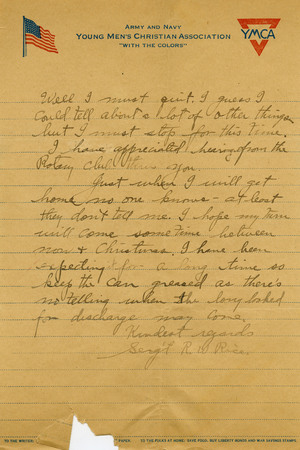 ARMY AND NAVY
YOUNG MEN'S CHRISTIAN ASSOCIATION
"WITH THE COLORS"
YMCA
Well I must quit. I guess I
could tell about a lot of other things
but I must stop for this time.
I have appreciated hearing from the
Rotary Club thru you.
Just when I will get
home no one knows - at least
they don't tell me. I hope my turn
will come sometime between
now & Christmas. I have been
expecting it for a long time so
keep the Can greased as there's
no telling when the long looked
for discharge may come.
Kindest regards
Sergt R. D
TO THE WRITER: PAPER TO THE FOLKS AT HOME: SAVE FOOD, BUY LIBERTY BONDS AND WAR SAVINGS STAMPS